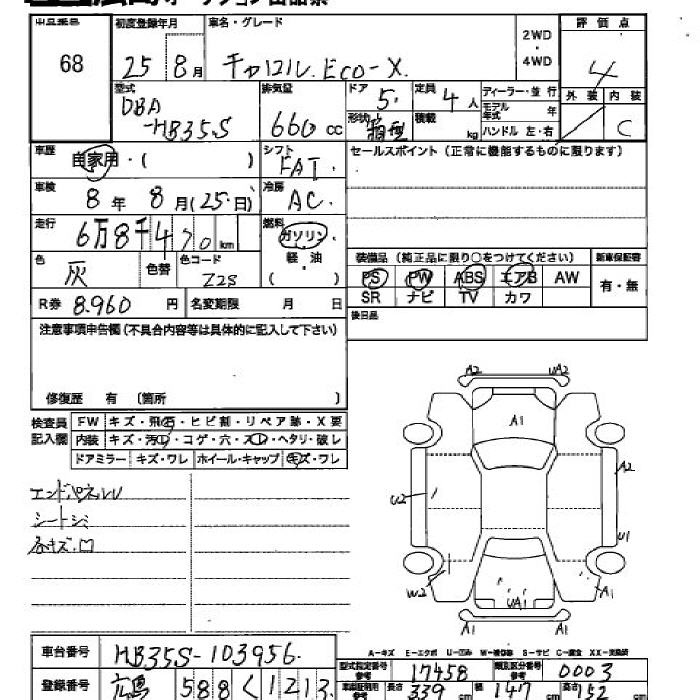 出品番号 初度登録年月 車名・グレード 2WD・4WD 評価点
68 25年8月 キャロル. ECO-X. 4
型式 排気量 ドア 定員 ディーラー・並行 外装 内装
DBA-HB35S 660cc 5. 4人 モデル年式 年 C
形状 箱型 積載 kg ハンドル 左・右
車歴 自家用・( ) シフト FAT. セールスポイント(正常に機能するものに限ります)
車検 8年 8月(25.日) 冷房 AC.
走行 6万8千470km 燃料 ガソリン・軽油 ( )
色 灰 色替 色コード Z2S
装備品(純正品に限り○をつけてください) 新車保証書
PS PW ABS エアB AW 有・無
SR ナビ TV カワ
R券 8.960円 名変期限 月 日 後日品
注意事項申告欄(不具合内容等は具体的に記入して下さい)
修復歴 有 〔箇所 〕
検査員記入欄 FW キズ・飛石・ヒビ割・リペア跡・X要
内装 キズ・汚れ・コゲ・穴・スレ・ヘタリ・破レ
ドアミラー キズ・ワレ ホイール・キャップ キズ・ワレ
A2 UA2
A1
A2
U2
U1
W2 UA1 A1
A1 A1
エンドパネルU
シートシミ
A-キズ E-エクボ U-凹み W-補修跡 S-サビ C-腐食 XX-交換済
車台番号 HB35S-103956.
型式指定番号 参考 17458 類別区分番号 参考 0003
登録番号 広島 588く1213
車検証明用参考 長さ 339cm 幅 147cm 高さ 152cm